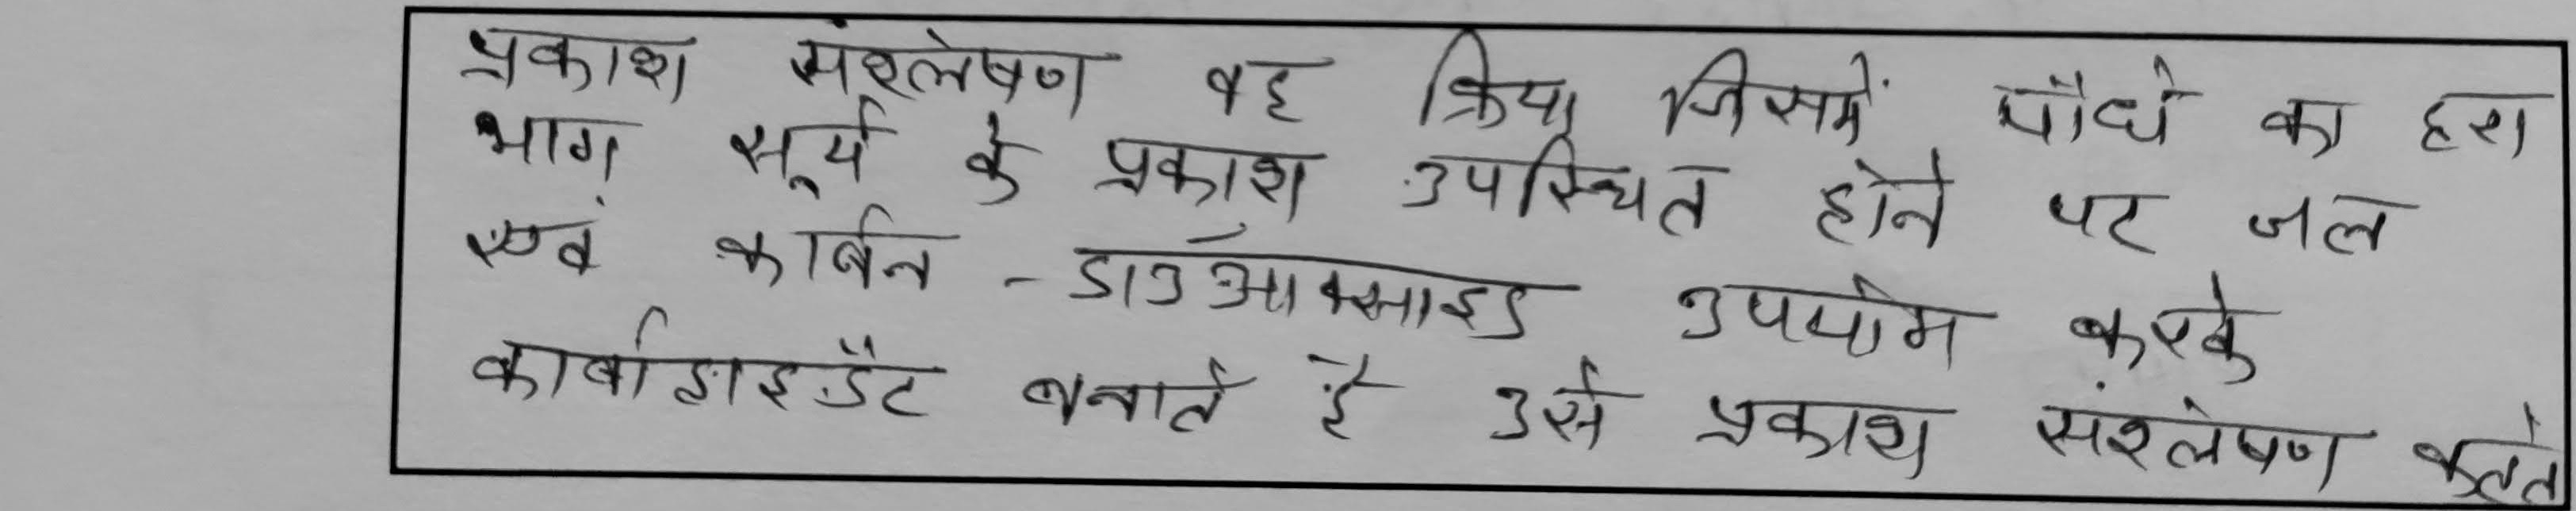 प्रकाश संश्लेषण वह क्रिया जिसमें पौधे का हरा
भाग सूर्य के प्रकाश उपस्थित होने पर जल
एवं कार्बन - डाउऑक्साइड उपयोग करके
कार्बोहाइड्रेट बनाते है उसे प्रकाश संश्लेषण कहते